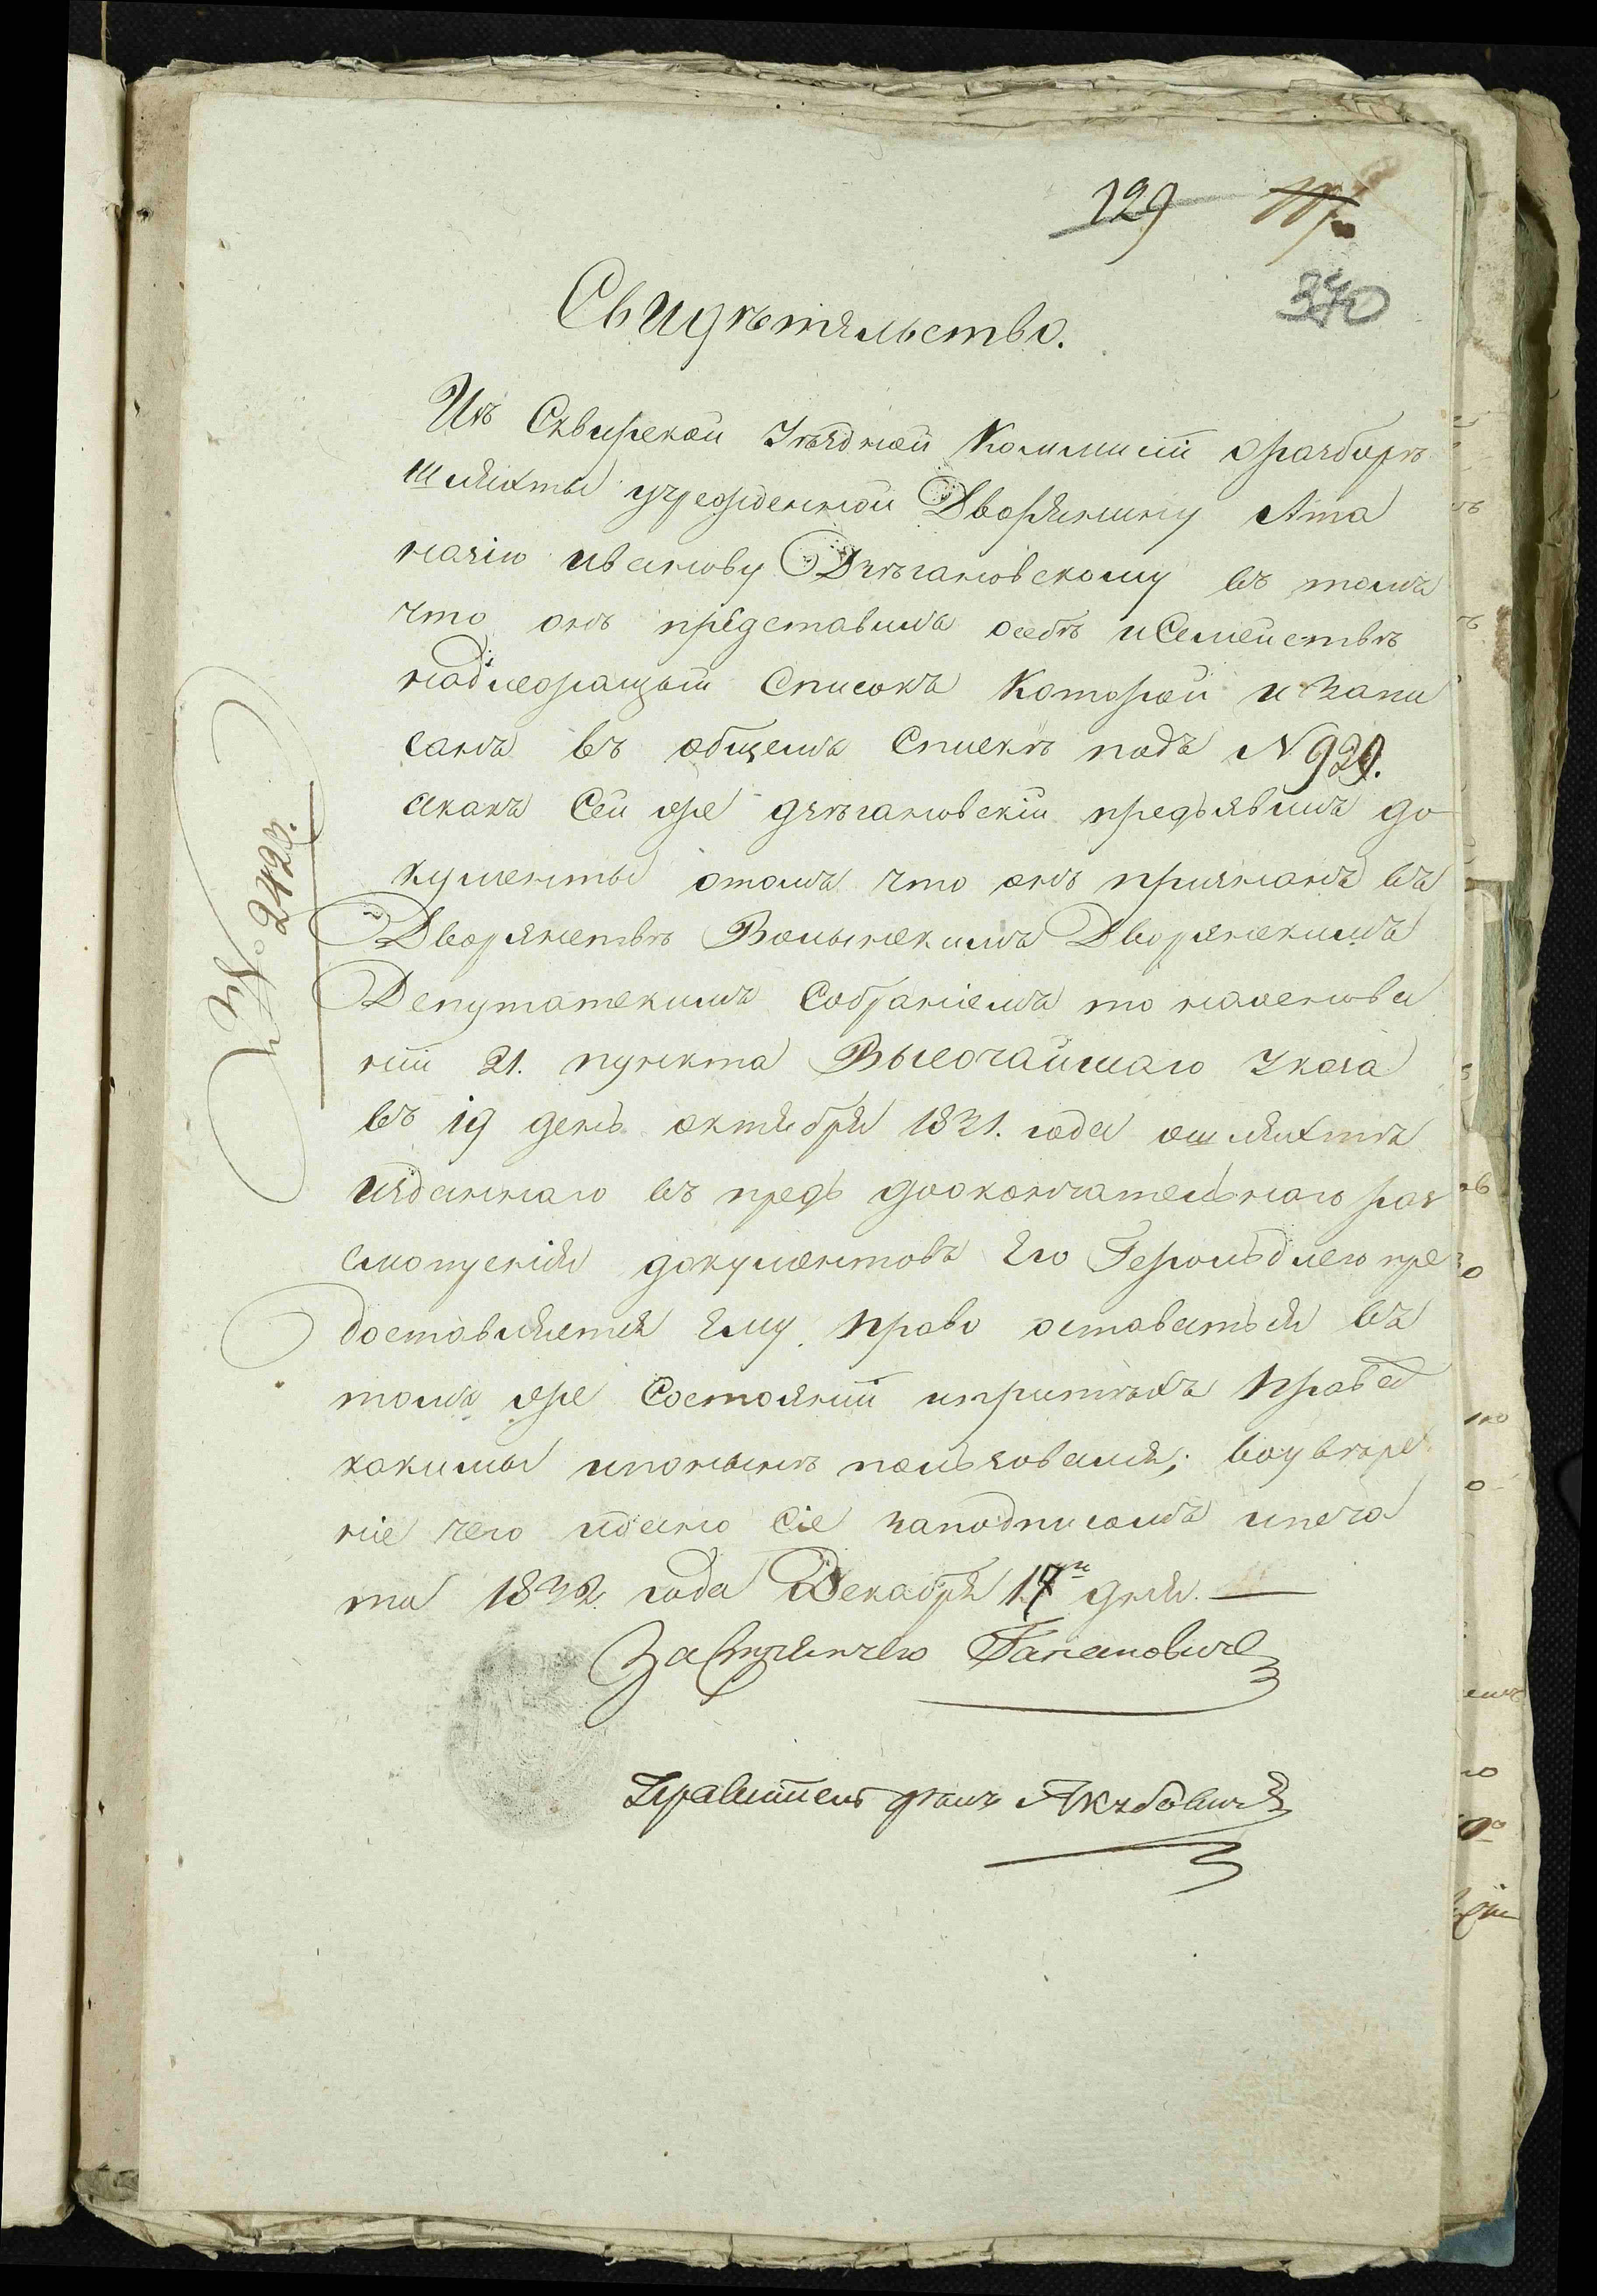 129 117
370
Свидѣтельство.
Изъ Сквирской Уѣздной Коммисіи оразборѣ
шляхты учрежденной Дворянину Ата
назію иванову Дзѣгановскому въ томъ
что онъ представилъ осебѣ иСемействѣ
надлежащій Списокъ Которой изапи
санъ въ общемъ Спискѣ подъ N 929.
акакъ Сей же дзѣгановскій предъявилъ до
кументы отомъ что онъ признанъ въ
Дворянствѣ Волынскимъ Дворянскимъ
Депутатскимъ Собраніемъ то наоснова
ніи 21. пункта Высочайшаго Указа
въ 19 день октября 1831. года ошляхтѣ
изданнаго въ предь доокончательнаго раз
смотренія документовъ Его Герольдіею пре
доставляется Ему право оставаться въ
томъ же Состояніи ипритѣхъ Права
какими ипонынѣ пользовался; воувѣре
ніе чего идано Сіе заподписомъ ипеча
ти 1832 года Декабря 17го дня.
№ 2428.
Правитель дѣлъ